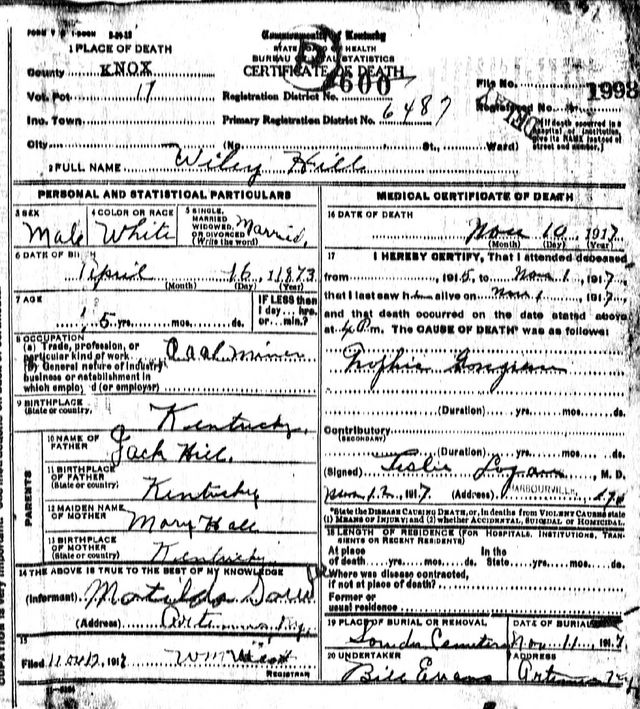 Commonwealth of Kentucky
STATE BOARD OF HEALTH
BUREAU OF VITAL STATISTICS
CERTIFICATE OF DEATH
1 PLACE OF DEATH
County KNOX
Vot. Pct 17
Ino. Town
City
Registration District No. 600
Primary Registration District No. 6487
(No. St., Ward)
File No. 1998
Registered No.
(If death occurred in a hospital or institution, give its NAME instead of street and number.)
2 FULL NAME Wiley Hill
PERSONAL AND STATISTICAL PARTICULARS
3 SEX
Male
4 COLOR OR RACE
White
5 SINGLE, MARRIED WIDOWED, OR DIVORCED (Write the word)
Married
6 DATE OF BIRTH
April 16, 1873
(Month) (Day) (Year)
7 AGE
yrs. mos. ds.
IF LESS than 1 day... hrs. or... min.?
8 OCCUPATION
(a) Trade, profession, or particular kind of work
Coal miner
(b) General nature of industry business or establishment in which employed (or employer)
9 BIRTHPLACE (State or country,
Kentucky.
PARENTS
10 NAME OF FATHER
Jack Hill.
11 BIRTHPLACE OF FATHER (State or country)
Kentucky
12 MAIDEN NAME OF MOTHER
Mary Hall
13 BIRTHPLACE OF MOTHER (State or country)
Kentucky
14 THE ABOVE IS TRUE TO THE BEST OF MY KNOWLEDGE
(Informant) Matilda
(Address) Artemus Ky.
15
Filed 1917
REGISTRAR
MEDICAL CERTIFICATE OF DEATH
16 DATE OF DEATH
Nov 10 1917
(Month) (Day) (Year)
17 I HEREBY CERTIFY, That I attended deceased
from 1915, to Nov 1, 1917,
that I last saw him alive on Nov 1, 1917,
and that death occurred on the date stated above
at 4 P.m. The CAUSE OF DEATH* was as follows:
(Duration) yrs. mos. ds.
Contributory
(SECONDARY)
(Duration) yrs. mos. ds.
(Signed) Leslie Logan, M. D.
Nov 12, 1917. (Address) BARBOURVILLE, Ky.
*State the DISEASE CAUSING DEATH, or, in deaths from VIOLENT CAUSES state (1) MEANS OF INJURY; and (2) whether ACCIDENTAL, SUICIDAL OR HOMICIDAL.
18 LENGTH OF RESIDENCE (FOR HOSPITALS, INSTITUTIONS, TRANSIENTS OR RECENT RESIDENTS)
At place of death yrs. mos. ds. In the State yrs. mos. ds.
Where was disease contracted, if not at place of death?
Former or usual residence
19 PLACE OF BURIAL OR REMOVAL
Cemetery
DATE OF BURIAL
Nov 11, 1917
20 UNDERTAKER
Bill Evans
ADDRESS
Artemus Ky